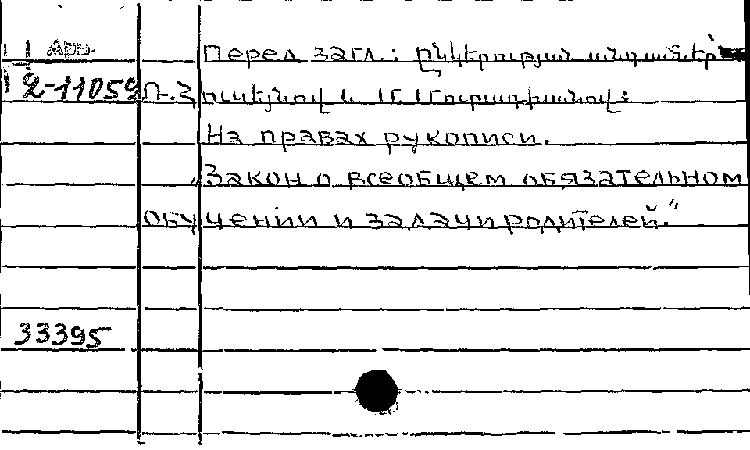 Арм.
Перед загл.: Ընկերության անդամներ՝
2-11059
На правах рукописи.
„Закон о всеобщем обязательном
обучении и задачи родителей.“
33395